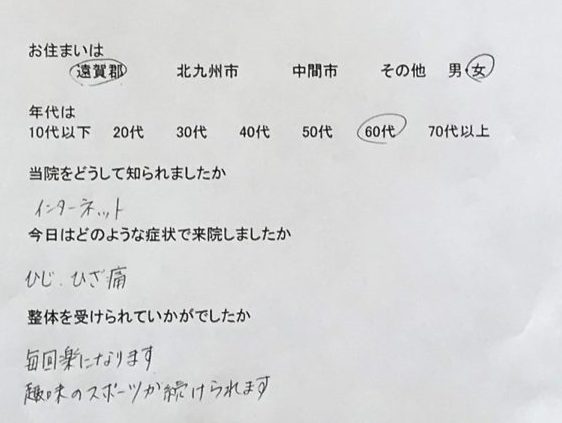 お住まいは
遠賀郡 北九州市 中間市 その他 男・女
年代は
10代以下 20代 30代 40代 50代 60代 70代以上
当院をどうして知られましたか
インターネット
今日はどのような症状で来院しましたか
ひじ.ひざ痛
整体を受けられていかがでしたか
毎回楽になります
趣味のスポーツが続けられます